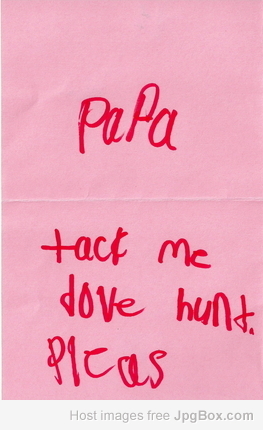 PaPa
tack me
dove hunt.
Pleas
Host images free JpgBox.com